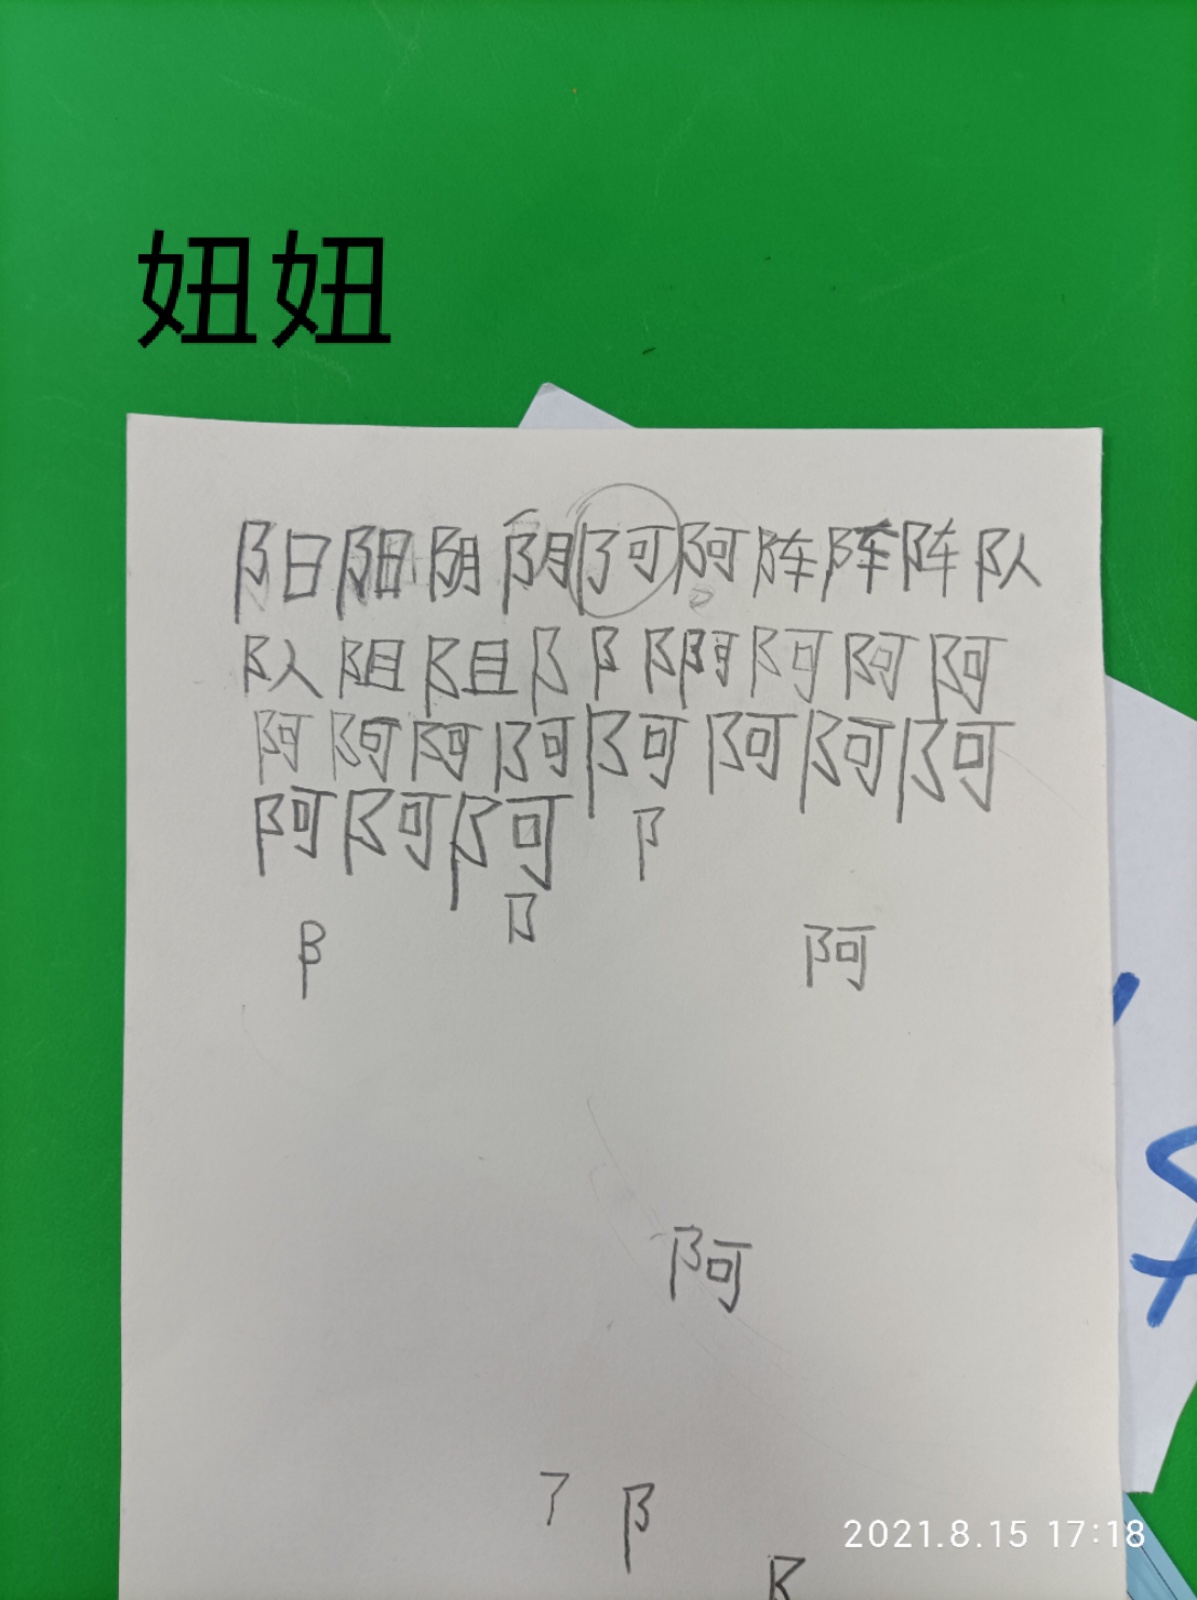 妞妞
阳阳阴阴阿阿阵阵阵队
队阻阻阝阝阝阿阿阿阿
阿阿阿阿阿阿阿阿
阿阿阿阝
阝
阝
阿
阿
阝
2021.8.15 17:18